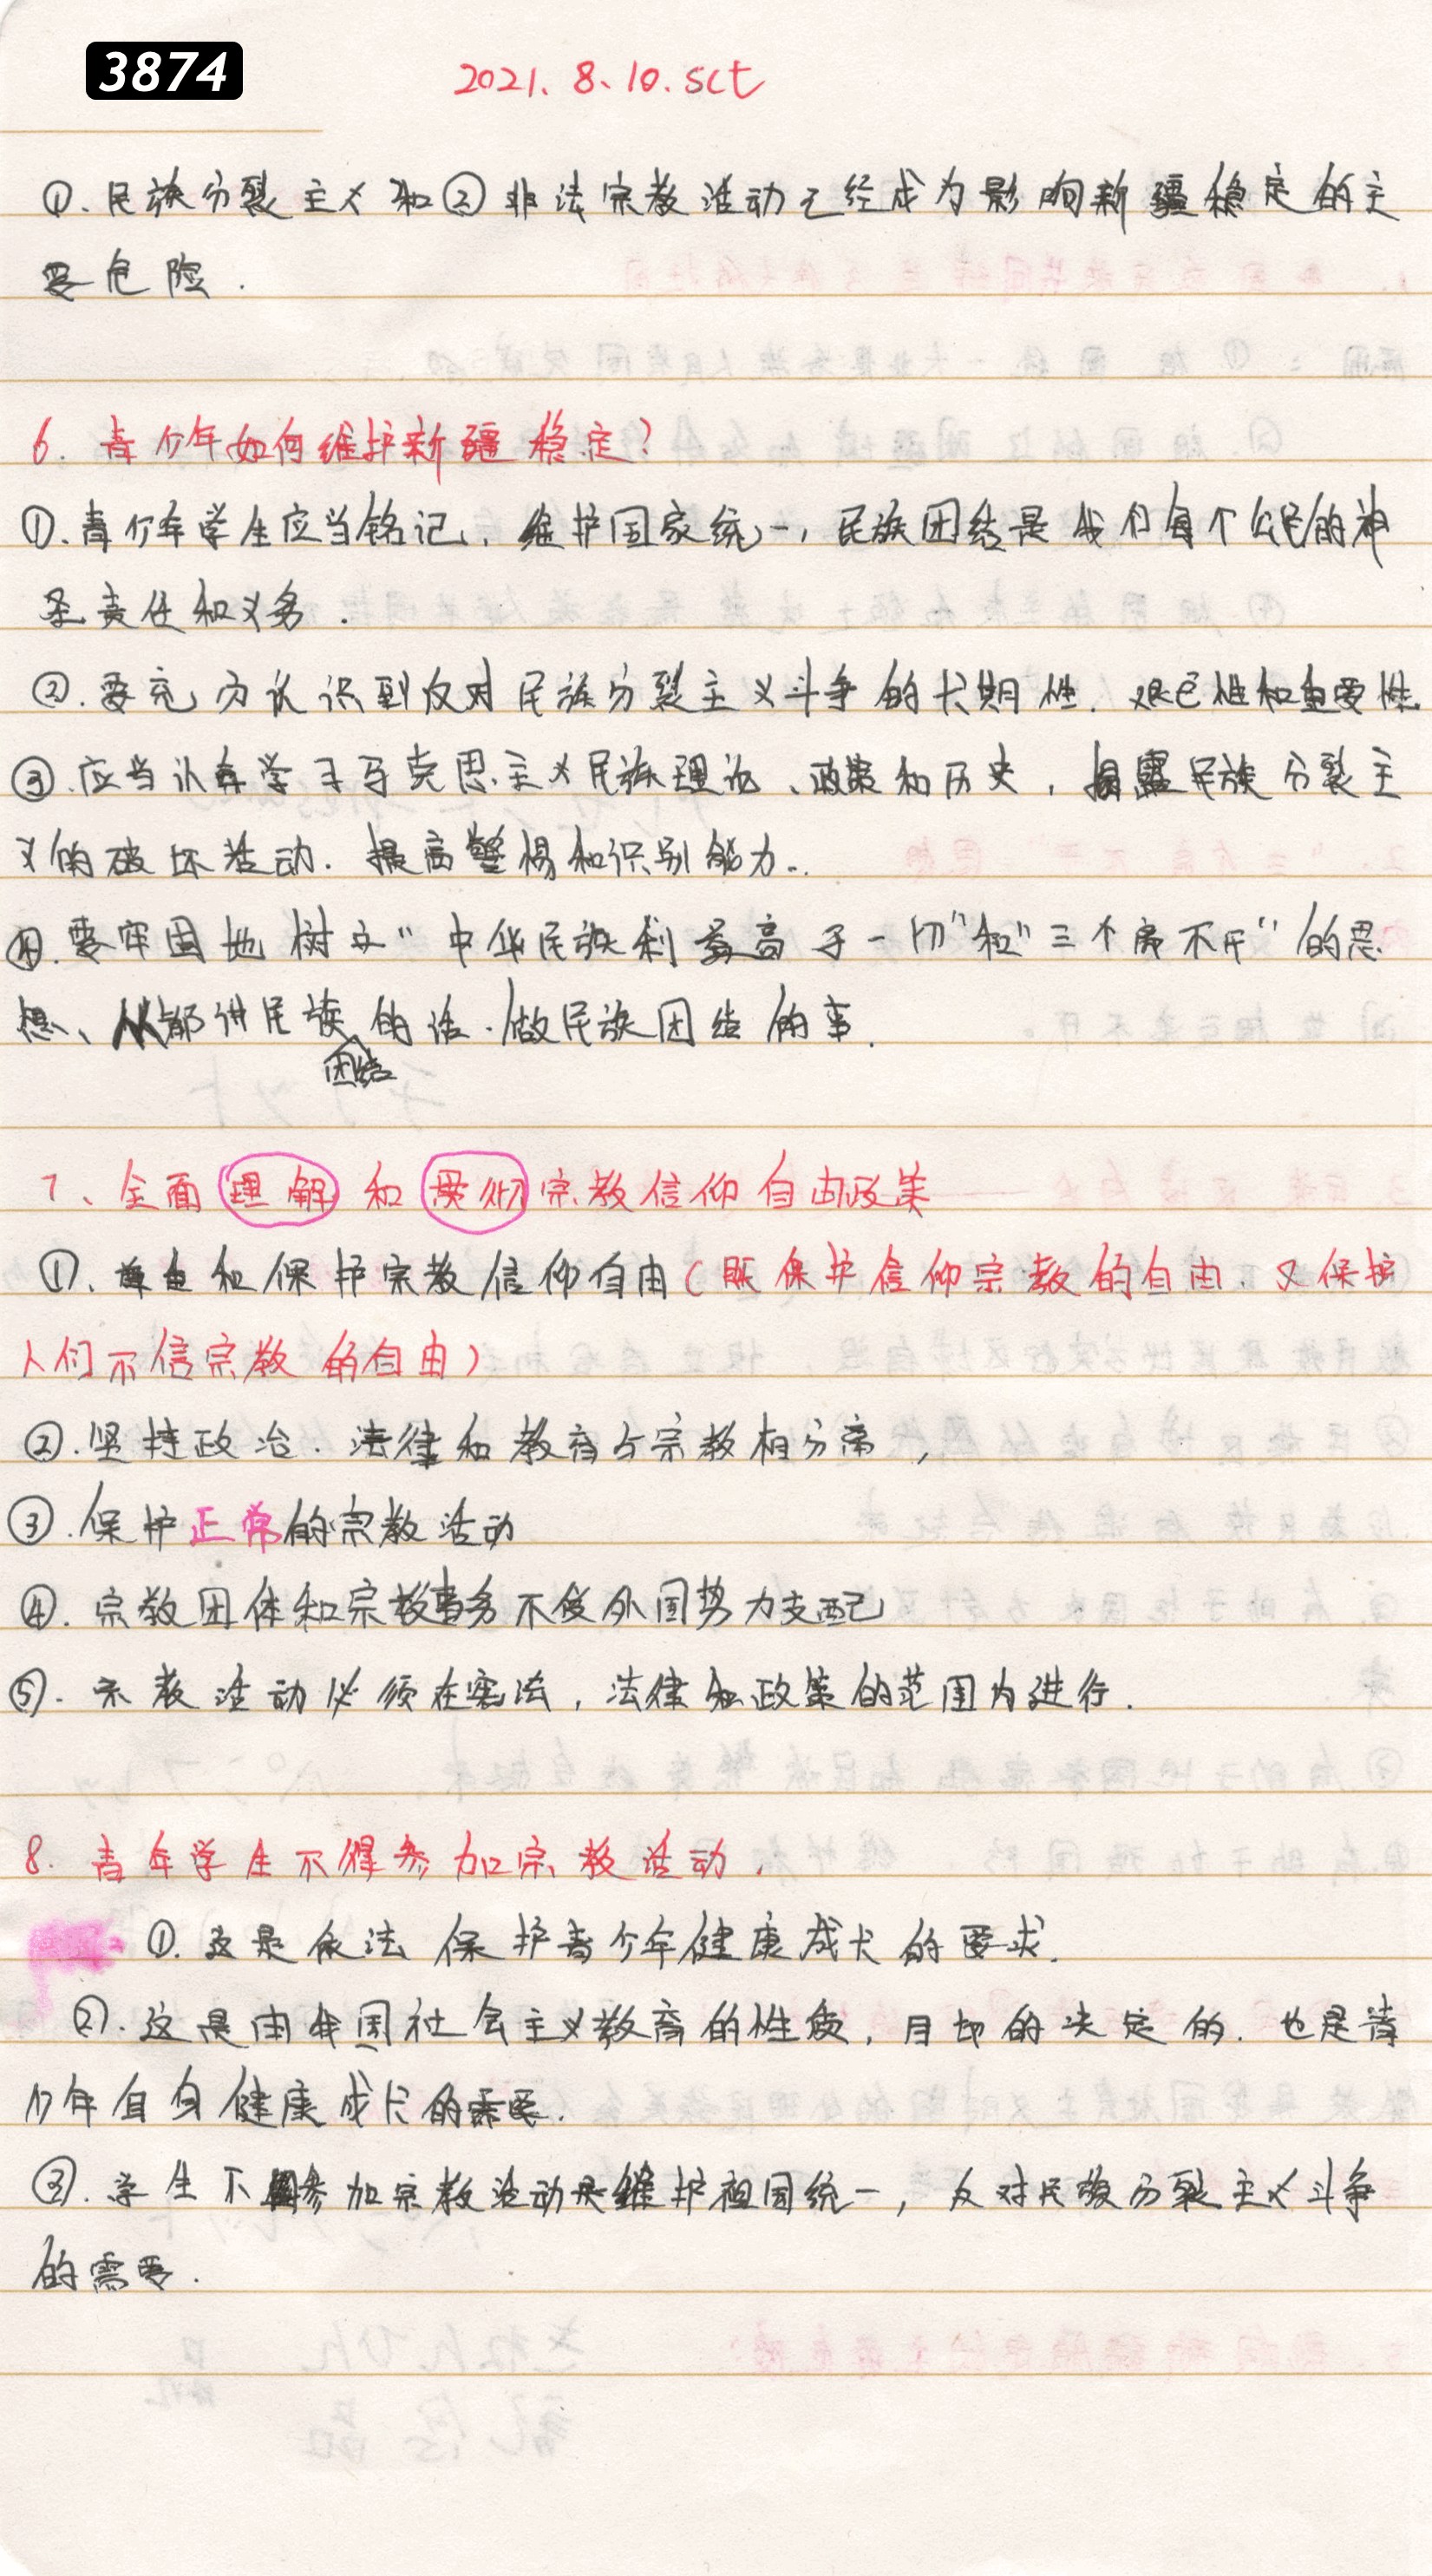 3874
2021.8.10.sct
①.民族分裂主义和②非法宗教活动已经成为影响新疆稳定的主
要危险.
6.青少年如何维护新疆稳定?
①.青少年学生应当铭记,维护国家统一,民族团结是我们每个公民的神
圣责任和义务.
②.要充分认识到反对民族分裂主义斗争的长期性.艰巨性和重要性
③.应当认真学习马克思主义民族理论、政策和历史,揭露民族分裂主
义的破坏活动.提高警惕和识别能力..
④.要牢固地树立"中华民族利益高于一切"和"三个离不开"的思
想、都讲民族团结的话.做民族团结的事.
7、全面理解和贯彻宗教信仰自由政策
①.尊重和保护宗教信仰自由(既保护信仰宗教的自由.又保护
人们不信宗教的自由)
②.坚持政治.法律和教育与宗教相分离,
③.保护正常的宗教活动
④.宗教团体和宗教事务不受外国势力支配
⑤.宗教活动必须在宪法,法律和政策的范围内进行.
8.青年学生不得参加宗教活动.
①.这是依法保护青少年健康成长的要求.
②.这是由我国社会主义教育的性质,目的决定的.也是青
少年自身健康成长的需要.
③.学生不参加宗教活动是维护祖国统一,反对民族分裂主义斗争
的需要.